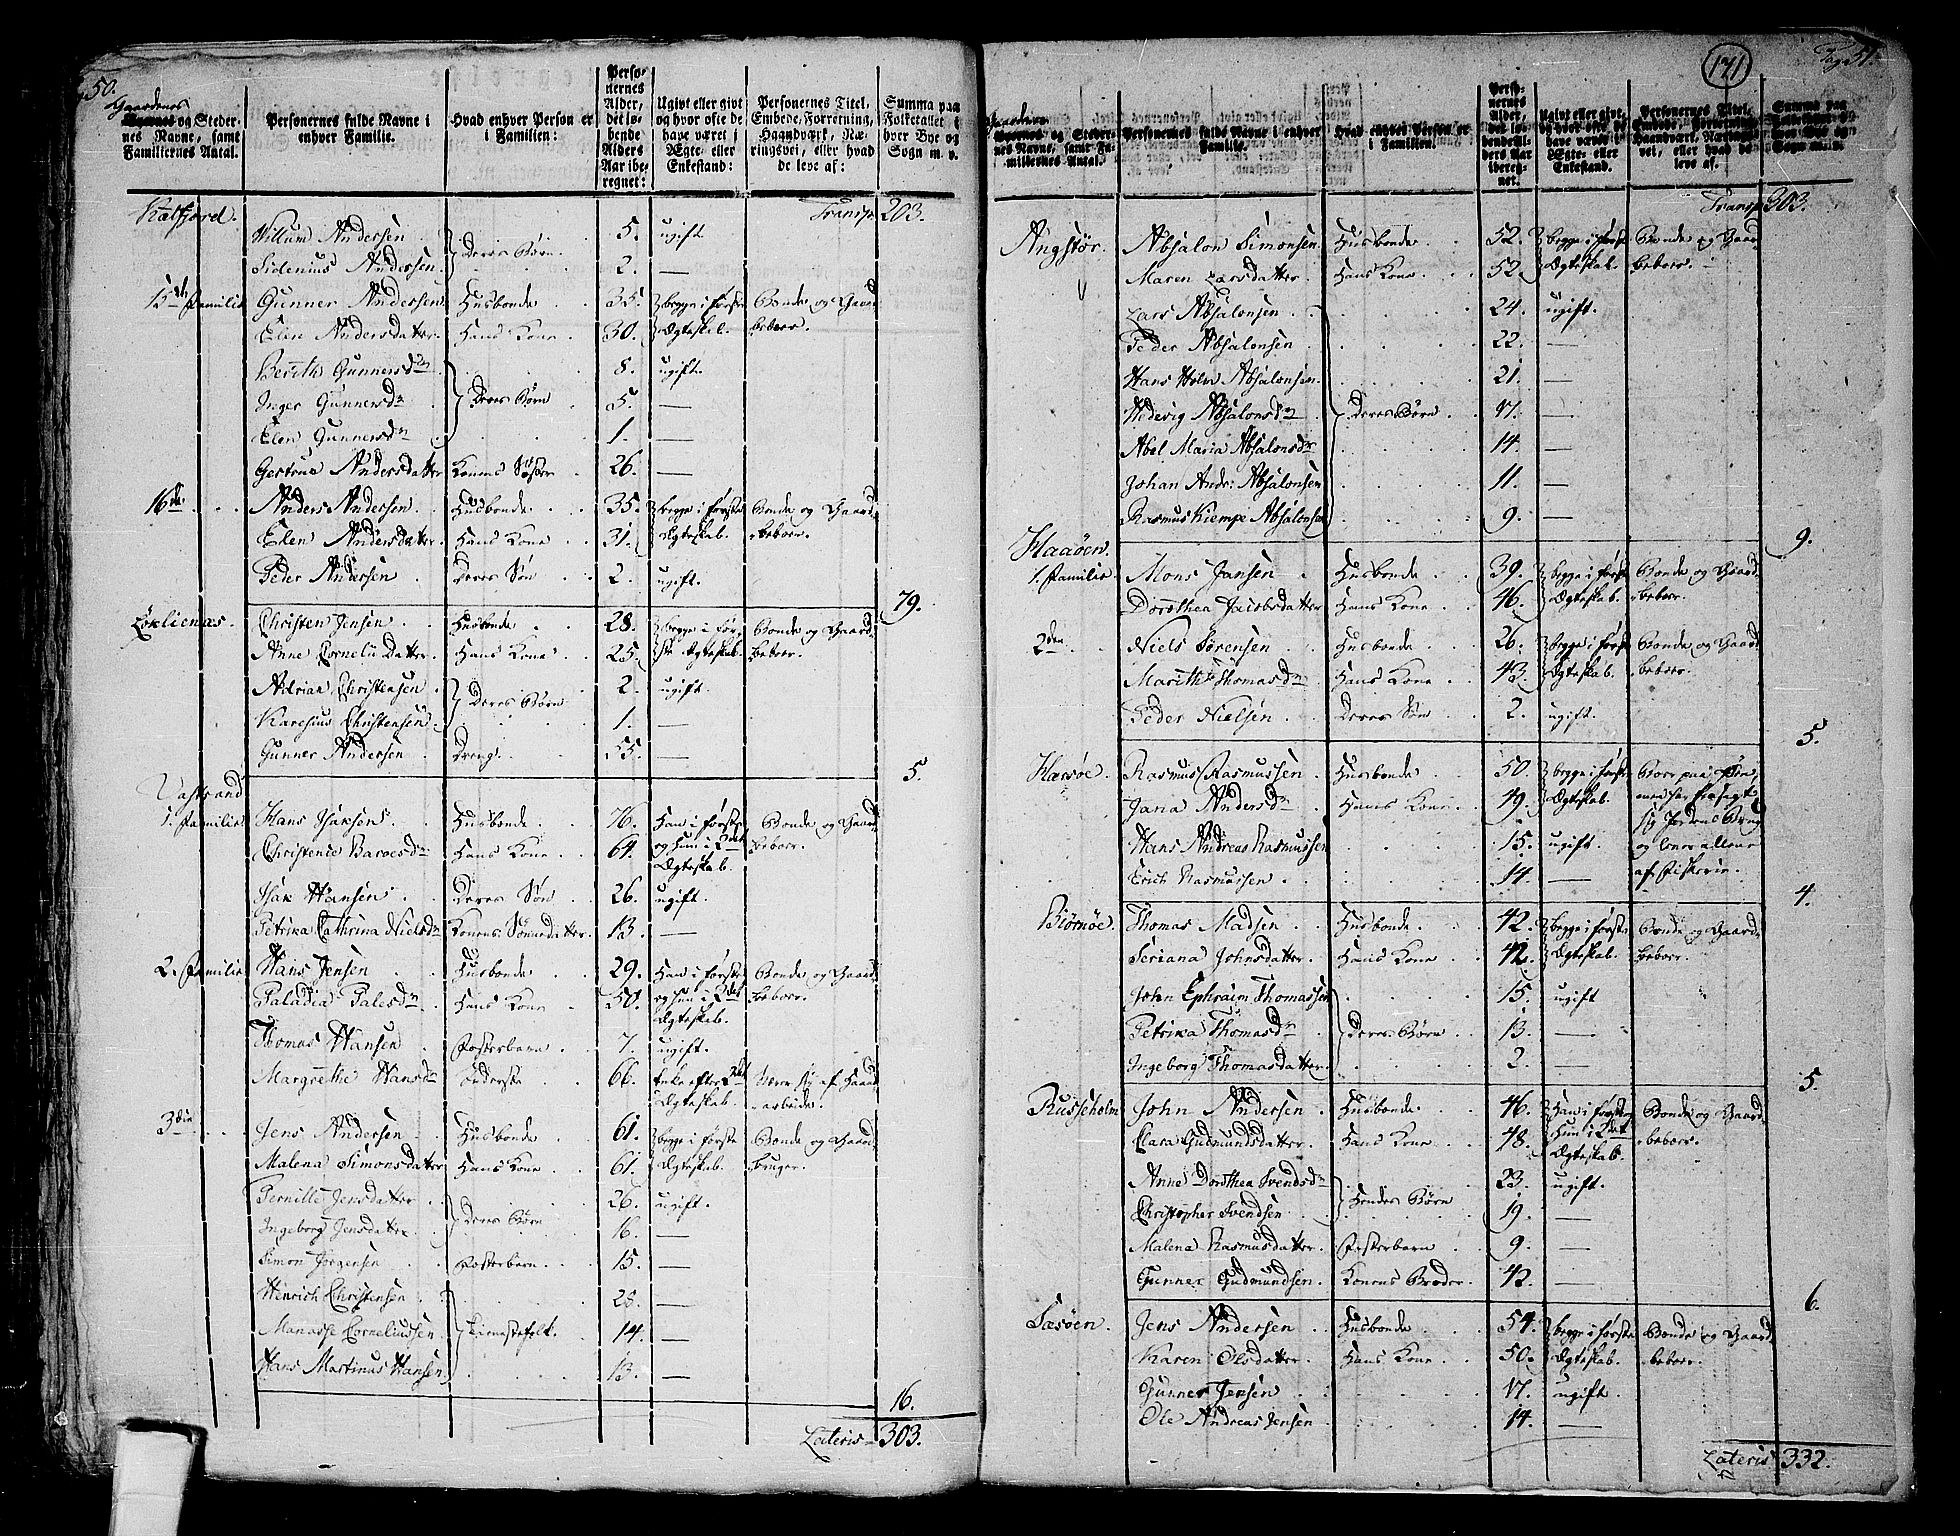 50.
Gaardenes
Byernes og Stedernes Navne, samt Familiernes Antal.
Personernes fulde Navne i enhver Familie.
Hvad enhver Person er i Familien:
Personernes Alder, det løbende Alders Aar iberegnet:
Ugivt eller givt og hvor ofte de have været i Ægte- eller Enkestand:
Personernes Titel, Embede, Forretning, Haandværk, Næringsvei, eller hvad de leve af:
Summa paa Folketallet i hver Bye og Sogn m. v.
Kalfjord. Transp. 203.
Willum Andersen } Deres Børn 5. ugift.
Sidenius Andersen 2. —
15de Familie Gunner Andersen Husbonde 35 begge i første Bonde og Gaard
Elen Andersdatter Hans Kone 30. Ægteskab. beboer.
Berith Gunnersdr 8. ugift.
Inger Gunnersdr } Deres Børn 5. —
Elen Gunnersdr 1. —
Gertrue Andersdatter Konens Søster 26. —
16de Anders Andersen Husbonde 35. begge i første Bonde og Gaard
Elen Andersdatter Hans Kone 31. Ægteskab. beboer.
Peder Andersen Deres Søn 2. ugift.
79.
Løklienæs. Christen Jensen Husbonde 28. begge i før- Bonde og Gaard
Anne Cornelii Datter Hans Kone 25. ste Ægteskab. beboer.
Adrian Christensen } Deres Børn 2. ugift.
Karesius Christensen 1. —
Gunner Andersen Dreng 55. —
5.
Vastrand
1. Familie Hans Isaksen Husbonde 76. Han i første Bonde og Gaard
Christence Baroesdr Hans Kone 64. og Hun i 2det beboer.
Ægteskab.
Isak Hansen Deres Søn 26. ugift.
Petrika Cathrina Nielsdr Konens Sønnedatter. 13. —
2. Familie Hans Jensen Husbonde 29. Han i første Bonde og Gaard
Paladia Palesdr Hans Kone 50. og Hun i 2det beboer.
Ægteskab.
Thomas Hansen Fosterbarn 7. ugift.
Margrethe Hansdr Inderste 66. Enke efter 2det Nære sig af Haand
Ægteskab. arbeide.
3die Jens Andersen Husbonde 61. begge i første Bonde og Gaard
Malena Simonsdatter Hans Kone 61. Ægteskab. bruger.
Pernille Jensdatter } Deres Børn 26. ugift.
Ingeborg Jensdatter 16. —
Simon Jørgensen Fosterbarn 15. —
Henrich Christensen 28. —
Manasse Corneliussen } Tienestefolk. 14. —
Hans Martinus Hansen 13. —
16.
Lateris 303.
171
Pag. 51.
Gaardenes
Byernes og Stedernes Navne, samt Familiernes Antal.
Personernes fulde Navne i enhver Familie.
Hvad enhver Person er i Familien.
Personernes Alder, det løbende Alders Aar iberegnet.
Ugivt eller givt, og hvor ofte de have været i Ægte- eller Enkestand.
Personernes Titel, Embede, Forretning, Haandværk, Næringsvei, eller hvad de leve af.
Summa paa Folketallet i hver Bye og Sogn m. v.
Transp. 303.
Angstør. Absalon Simonsen Husbonde 52. begge i første Bonde og Gaard
Maren Larsdatter Hans Kone 52 Ægteskab. beboer.
Lars Absalonsen 24. ugift.
Peder Absalonsen 22. —
Hans Holm Absalonsen 21. —
Hedevig Absalonsdr } Deres Børn 17. —
Abel Maria Absalonsdr 14. —
Johan Andr: Absalonsen 11. —
Rasmus Kiempe Absalonsen 9. —
9.
Haaøen.
1. Familie Mons Jansen Husbonde 39. begge i første Bonde og Gaard
Dorothea Jacobsdatter Hans Kone 46. Ægteskab. beboer.
2den Niels Sørensen Husbonde 26. begge i første Bonde og Gaard
Marith Thomasdr Hans Kone 43. Ægteskab. beboer.
Peder Nielsen Deres Søn 2. ugift.
5.
Harsøe. Rasmus Rasmussen Husbonde 50. begge i første Boer paa Øen,
Jana Andersdr Hans Kone 49. Ægteskab. men har frasagt
sig Jordens Brug
Hans Andreas Rasmussen 15. ugift. og lever allene
Erich Rasmussen 14. — af Fiskerie.
4.
Biørnøe. Thomas Madsen Husbonde 42. begge i første Bonde og Gaard
Seriana Johnsdatter Hans Kone 42. Ægteskab. beboer.
John Ephraim Thomassen 15. ugift
Petrika Thomasdr } Deres Børn 13. —
Ingeborg Thomasdatter 2. —
5.
Russeholm John Andersen Husbonde 46. Han i første Bonde og Gaard
Clara Gudmundsdatter Hans Kone 48. Hun i 2det beboer.
Ægteskab.
Anne Dorothea Svendsdr } Hendes Børn 23. ugift.
Christopher Svendsen 19. —
Malena Rasmusdatter Fosterbarn 9. —
Gunner Gudmundsen Konens Broder 42. —
6.
Sasøen. Jens Andersen Husbonde 54. begge i første Bonde og Gaard
Karen Olsdatter Hans Kone 50. Ægteskab. beboer.
Gunner Jensen 17. ugift.
Ole Andreas Jensen 14. —
Lateris 332.